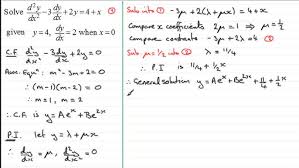 Solve d²y/dx² - 3 dy/dx + 2y = 4 + x ①
given y = 4, dy/dx = 2 when x = 0
C.F. d²y/dx² - 3 dy/dx + 2y = 0
Aux. Equⁿ: m² - 3m + 2 = 0
∴ (m-1)(m-2) = 0
∴ m = 1, m = 2
∴ C.F. is y = Aeˣ + Be²ˣ
P.I. let y = λ + μx
∴ dy/dx = μ, d²y/dx² = 0
Subs into ① -3μ + 2(λ + μx) = 4 + x
Compare x coefficients 2μ = 1 ⇒ μ = 1/2
Compare constants -3μ + 2λ = 4
Sub μ = 1/2 into ② λ = 11/4
∴ P.I is 11/4 + 1/2 x
∴ General solution y = Aeˣ + Be²ˣ + 11/4 + 1/2 x